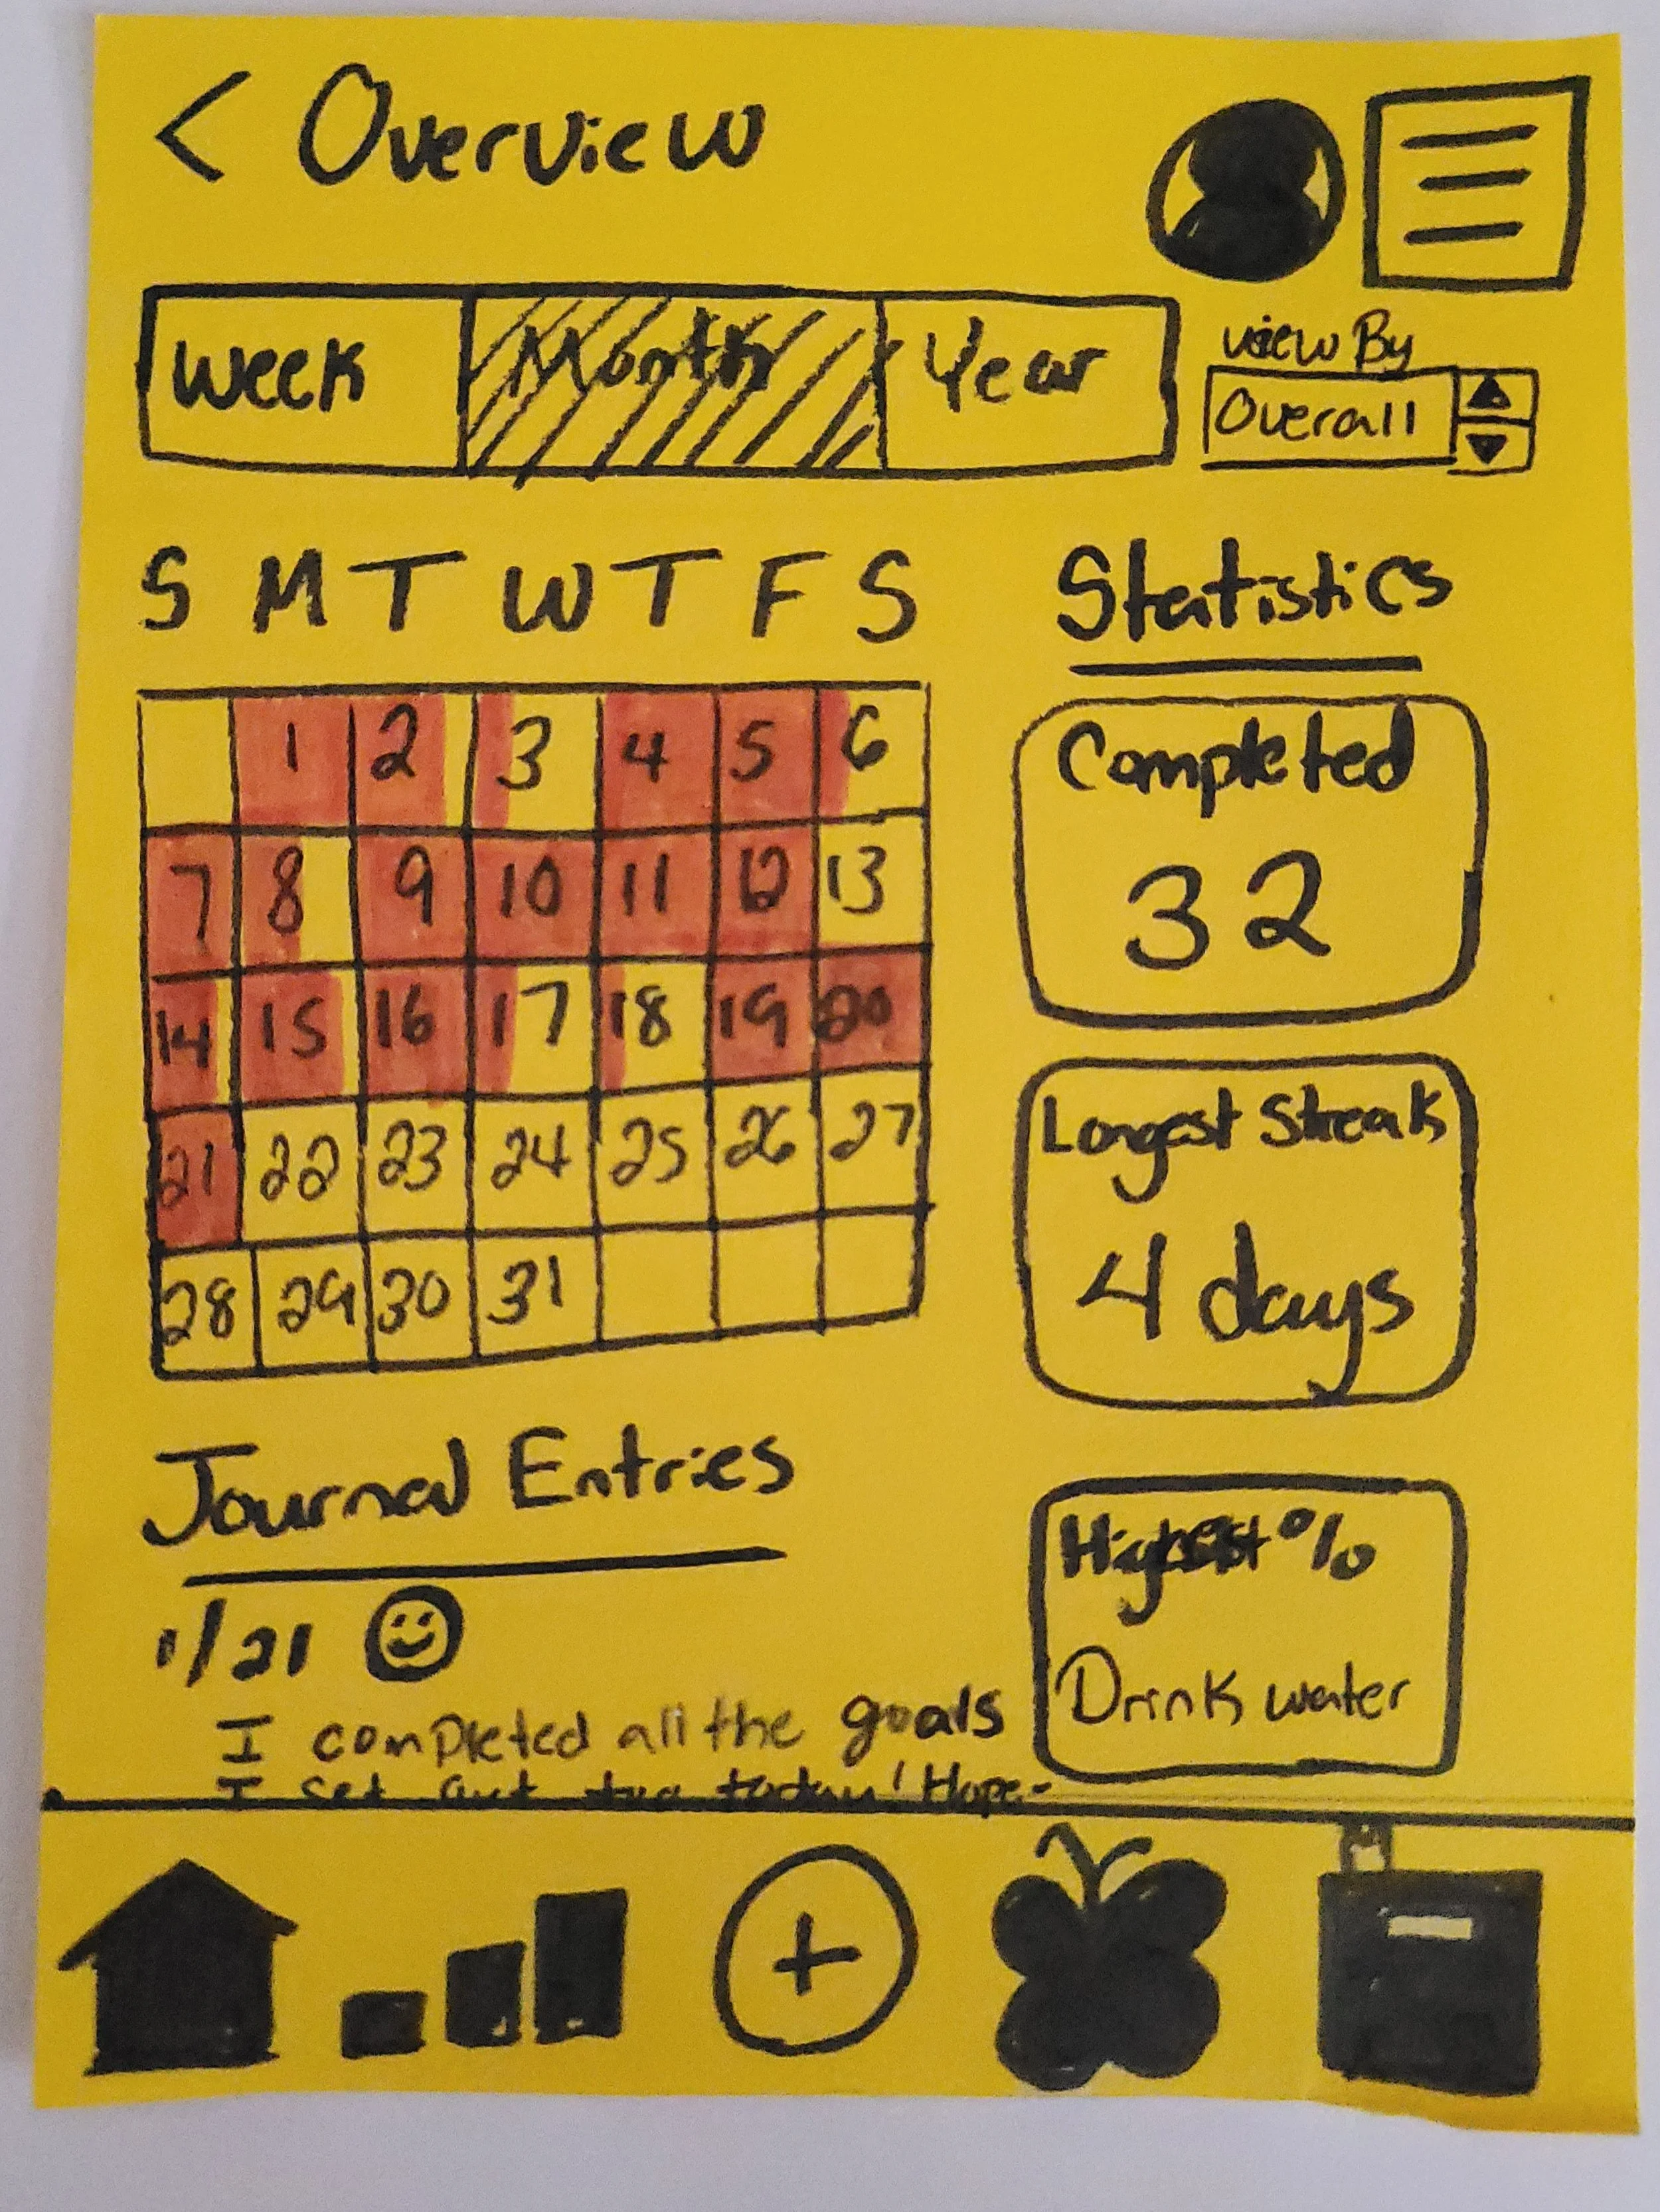 < Overview
Week Month Year
View By
Overall
S M T W T F S
1 2 3 4 5 6
7 8 9 10 11 12 13
14 15 16 17 18 19 20
21 22 23 24 25 26 27
28 29 30 31
Statistics
Completed
32
Longest Streak
4 days
Highest %
Drink water
Journal Entries
1/21
I completed all the goals
I set out too today! Hope-